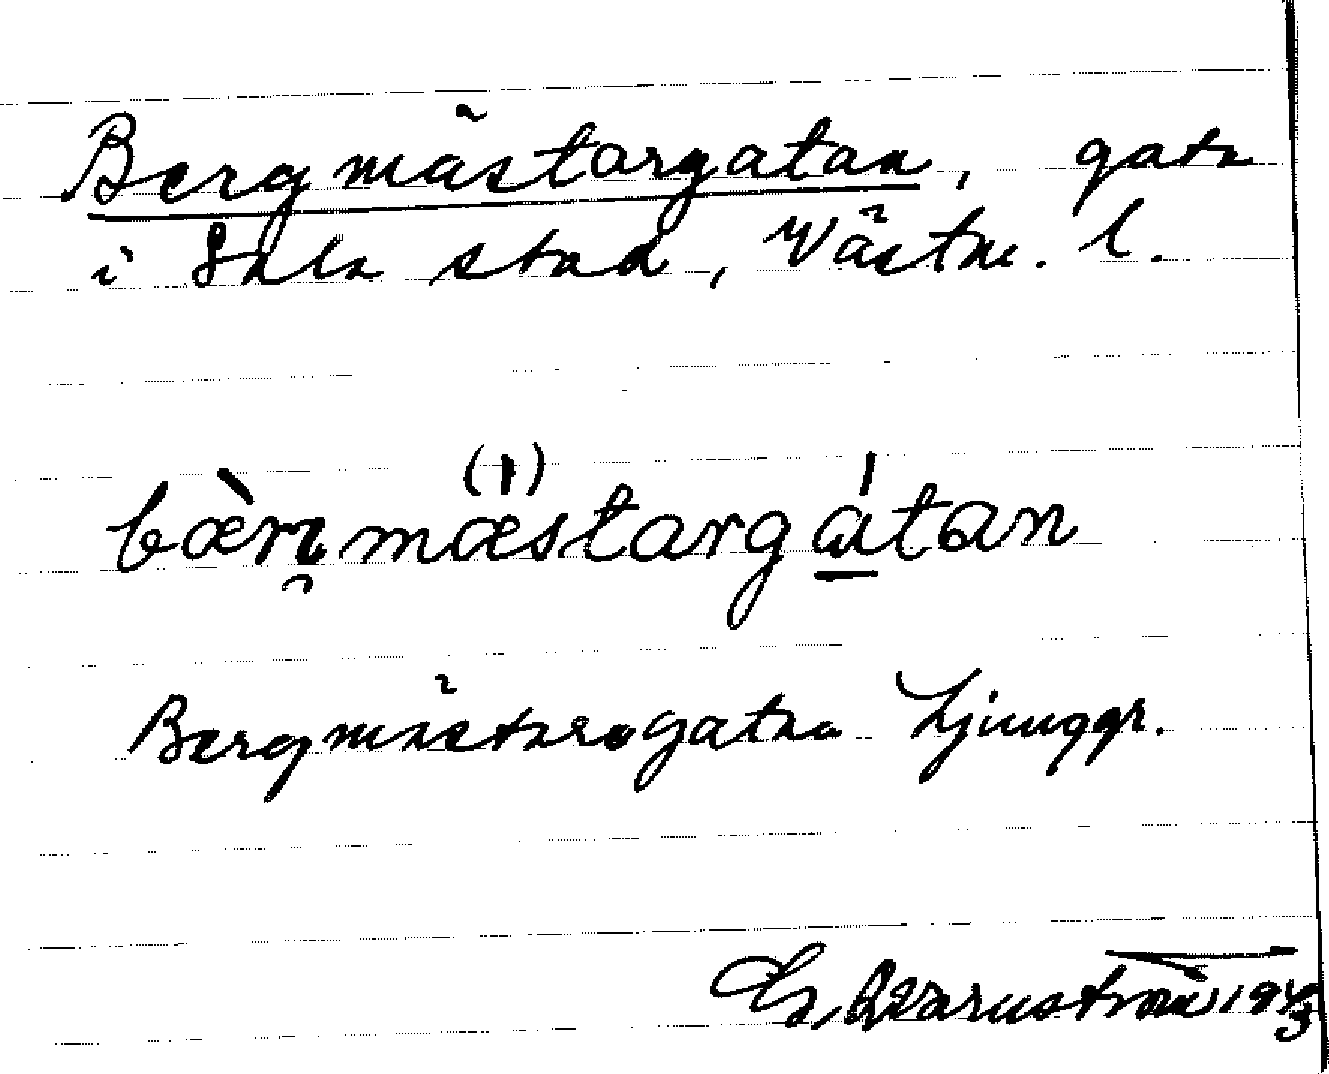 Bergmästargatan, gata
i Sala stad, Västm. l.
bæ̀ri̯mæstargátan
Bergmästaregatan Ljunggr.
E. Qvarnström 1943